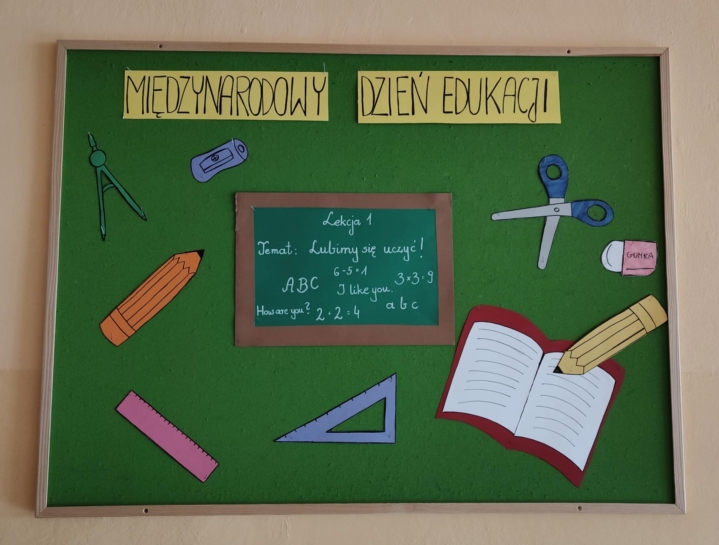 MIĘDZYNARODOWY DZIEŃ EDUKACJI
Lekcja 1
Temat: Lubimy się uczyć!
6-5=1
ABC I like you. 3×3=9
How are you? 2+2=4 a b c
GUMKA